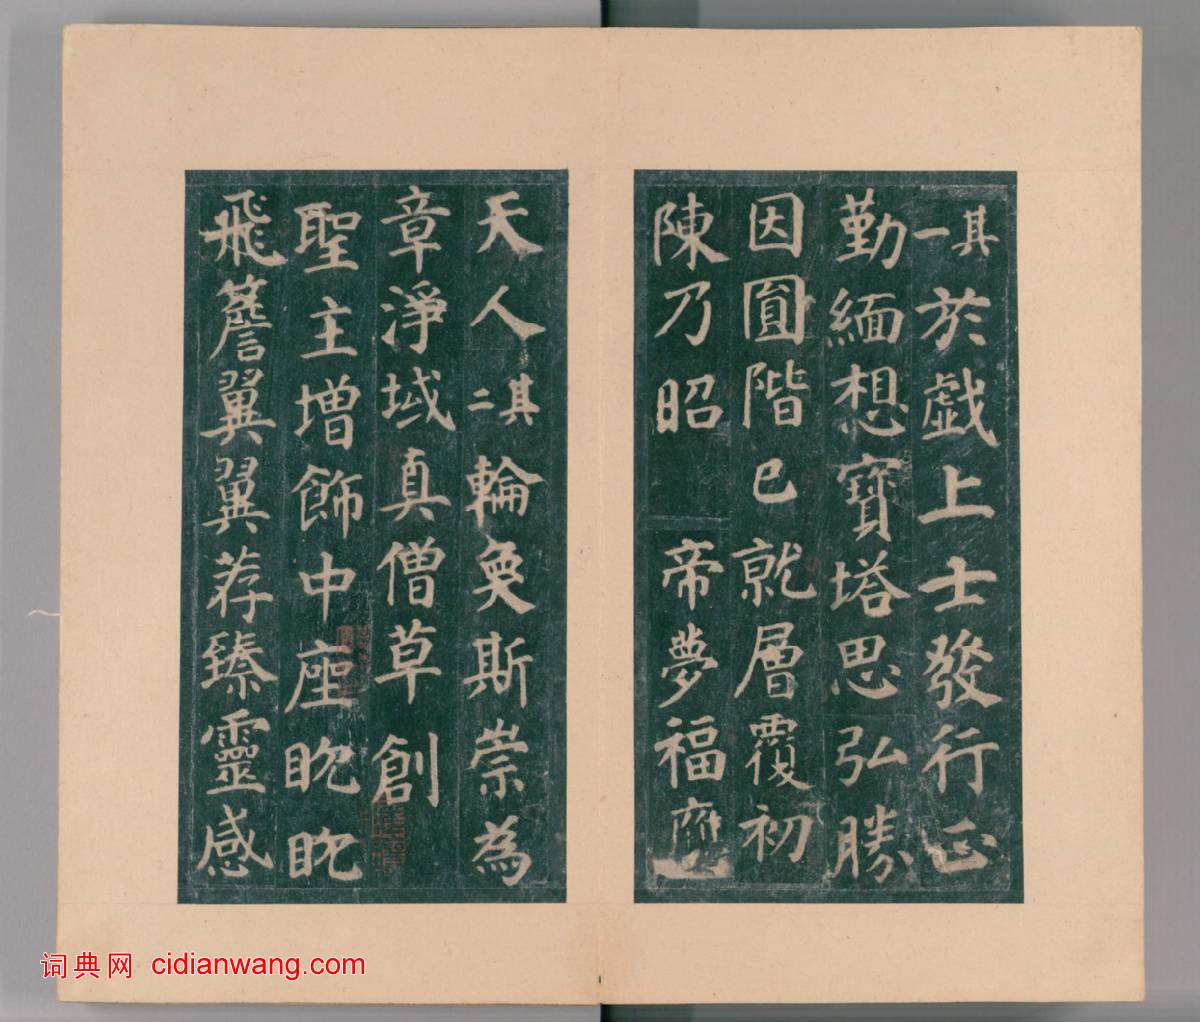 其一於戯上士發行正
勤緬想寶塔思弘勝
因圓階已就層覆初
陳乃昭帝夢福應
天人其二輪奐斯崇為
章淨域真僧草創
聖主增飾中座眈眈
飛簷翼翼荐臻靈感
词典网 cidianwang.com